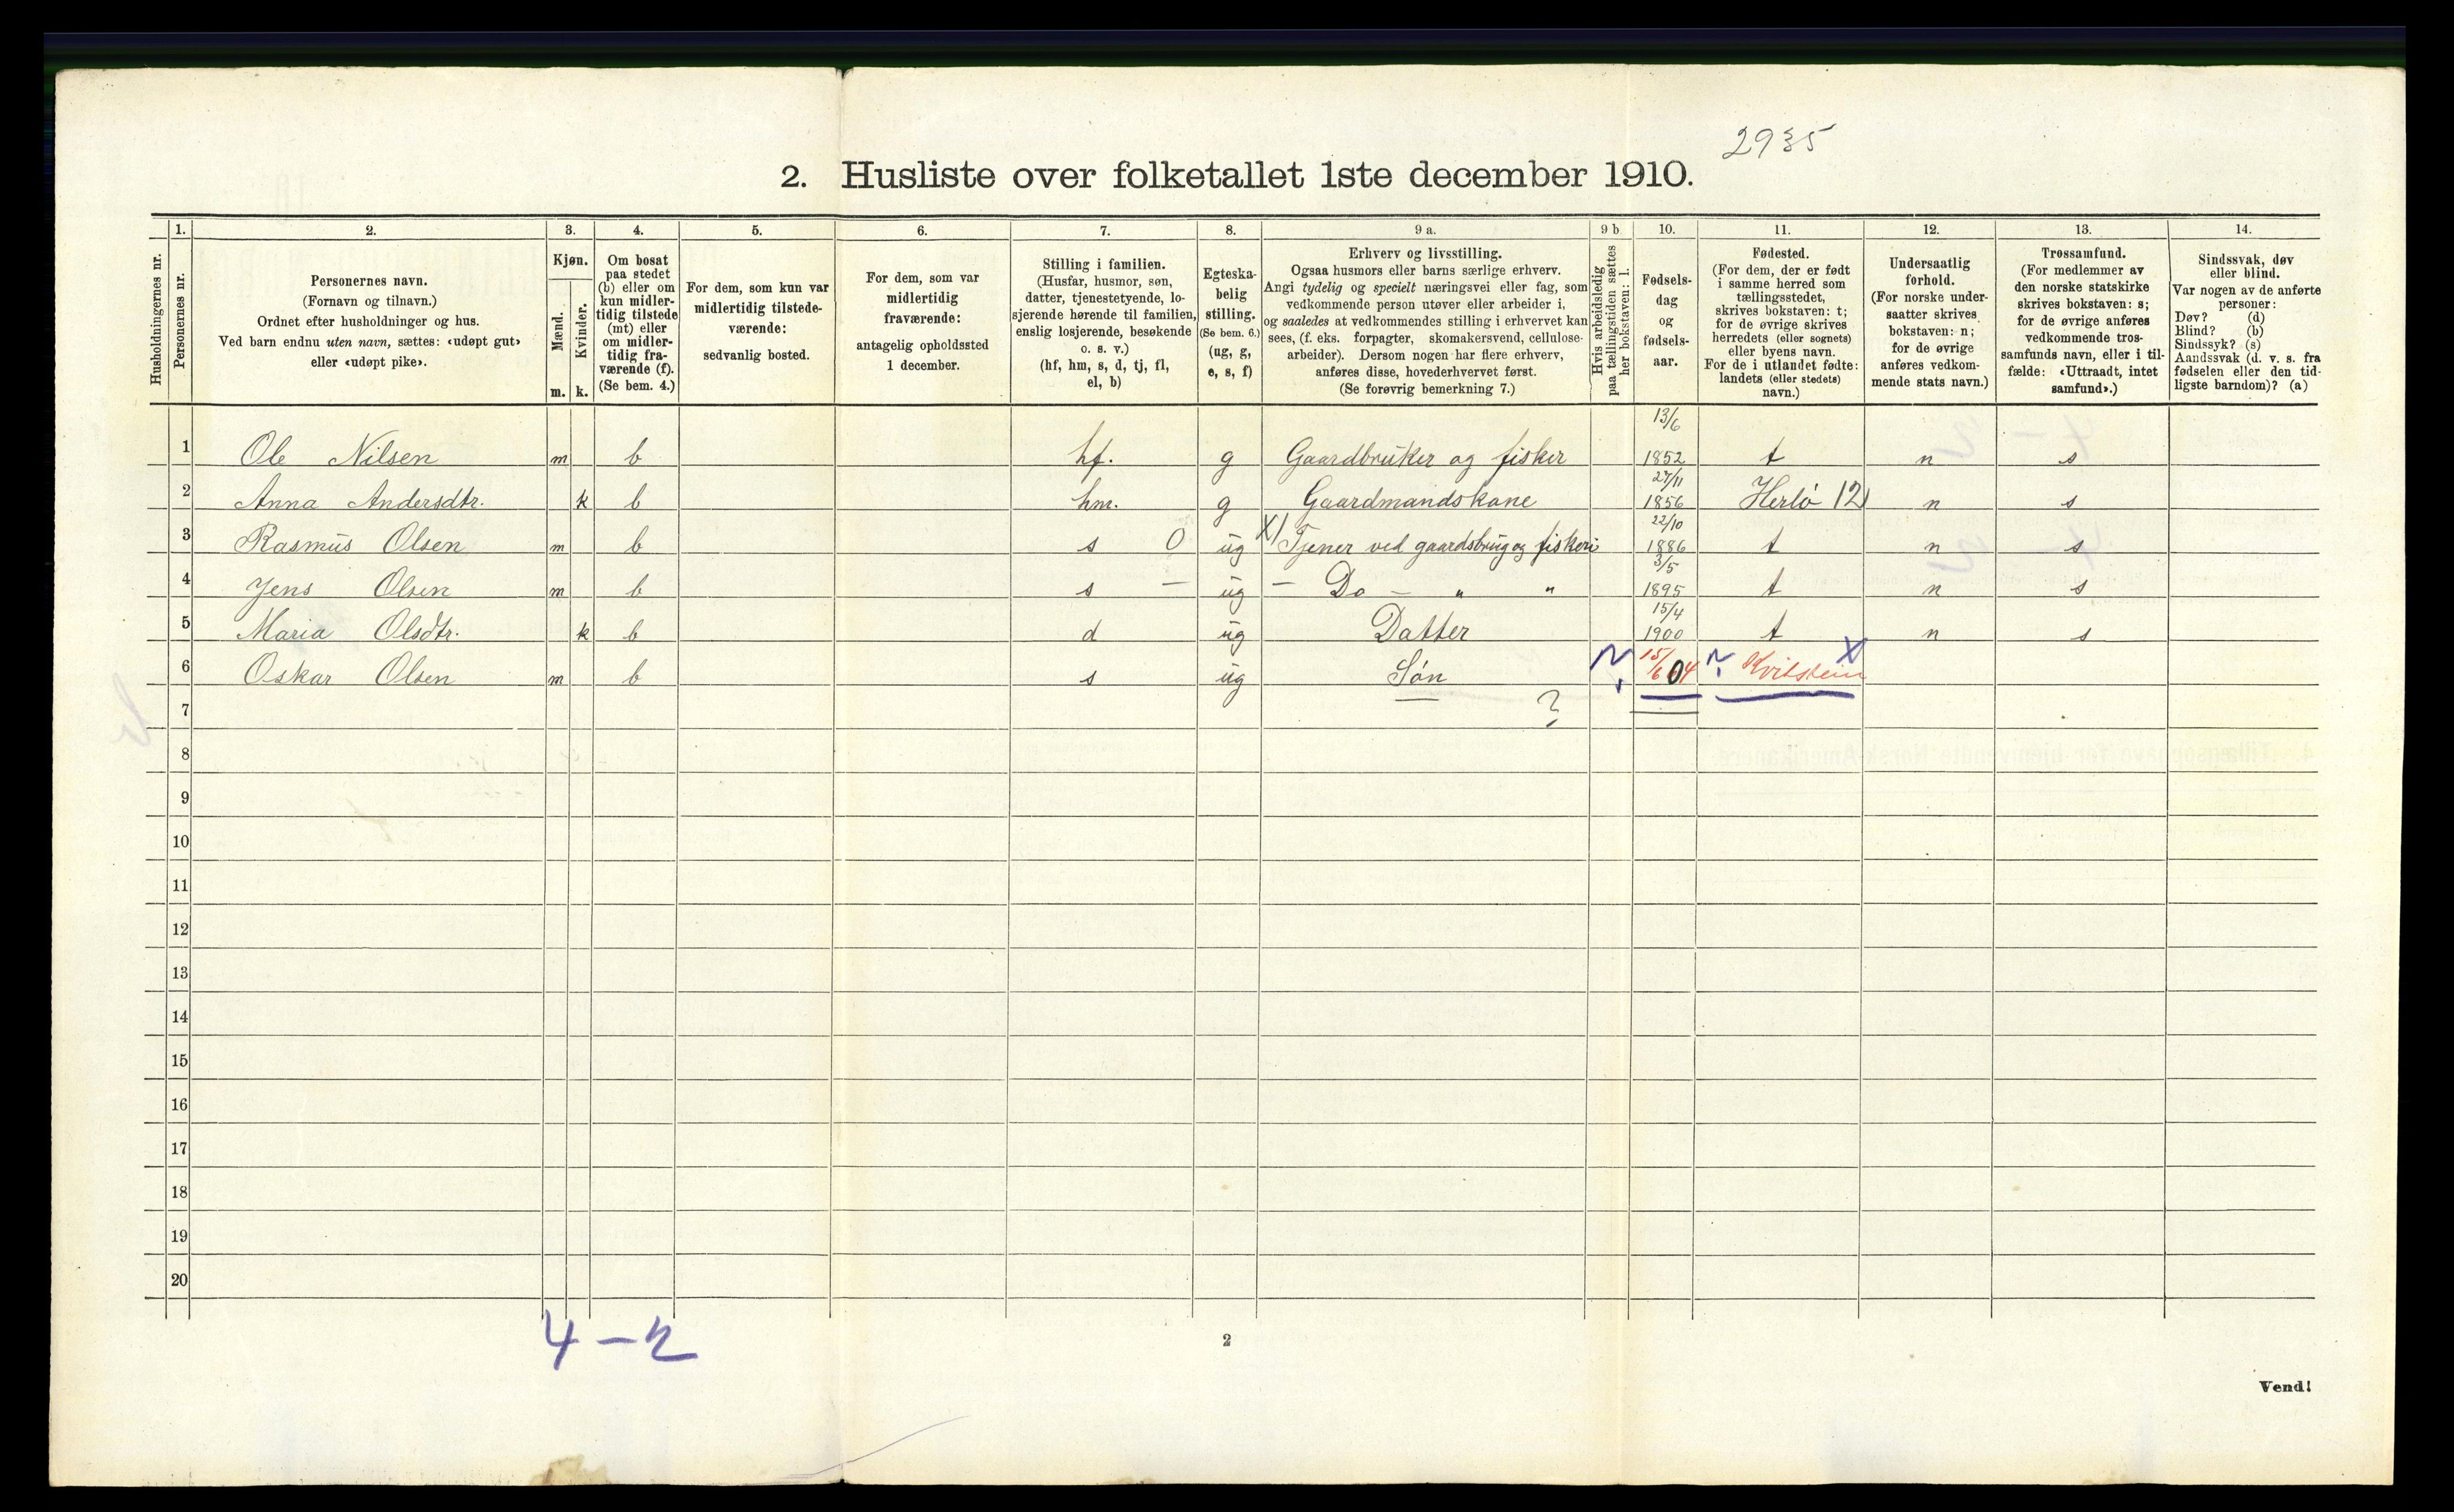 2935
2. Husliste over folketallet 1ste december 1910.
Husholdningernes nr.
1.
Personernes nr.
2.
Personernes navn.
(Fornavn og tilnavn.)
Ordnet efter husholdninger og hus.
Ved barn endnu uten navn, sættes: «udøpt gut»
eller «udøpt pike».
3.
Kjøn.
Mænd.
Kvinder.
m. k.
4.
Om bosat
paa stedet
(b) eller om
kun midler-
tidig tilstede
(mt) eller
om midler-
tidig fra-
værende (f).
(Se bem. 4.)
5.
For dem, som kun var
midlertidig tilstede-
værende:
sedvanlig bosted.
6.
For dem, som var
midlertidig
fraværende:
antagelig opholdssted
1 december.
7.
Stilling i familien.
(Husfar, husmor, søn,
datter, tjenestetyende, lo-
sjerende hørende til familien,
enslig losjerende, besøkende
o. s. v.)
(hf, hm, s, d, tj, fl,
el, b)
8.
Egteska-
belig
stilling.
(Se bem. 6.)
(ug, g,
e, s, f)
9 a.
Erhverv og livsstilling.
Ogsaa husmors eller barns særlige erhverv.
Angi tydelig og specielt næringsvei eller fag, som
vedkommende person utøver eller arbeider i,
og saaledes at vedkommendes stilling i erhvervet kan
sees, (f. eks. forpagter, skomakersvend, cellulose-
arbeider). Dersom nogen har flere erhverv,
anføres disse, hovederhvervet først.
(Se forøvrig bemerkning 7.)
9 b
Hvis arbeidsledig
paa tællingstiden sættes
her bokstaven: l.
10.
Fødsels-
dag
og
fødsels-
aar.
11.
Fødested.
(For dem, der er født
i samme herred som
tællingsstedet,
skrives bokstaven: t;
for de øvrige skrives
herredets (eller sognets)
eller byens navn.
For de i utlandet fødte:
landets (eller stedets)
navn.)
12.
Undersaatlig
forhold.
(For norske under-
saatter skrives
bokstaven: n;
for de øvrige
anføres vedkom-
mende stats navn.)
13.
Trossamfund.
(For medlemmer av
den norske statskirke
skrives bokstaven: s;
for de øvrige anføres
vedkommende tros-
samfunds navn, eller i til-
fælde: «Uttraadt, intet
samfund».)
14.
Sindssvak, døv
eller blind.
Var nogen av de anførte
personer:
Døv? (d)
Blind? (b)
Sindssyk? (s)
Aandssvak (d. v. s. fra
fødselen eller den tid-
ligste barndom)? (a)
1 Ole Nilsen m b hf. g Gaardbruker og fisker 13/6 1852 t n s
2 Anna Andersdtr. k b hm. g Gaardmandskone 27/11 1856 Herlö 12) n s
3 Rasmus Olsen m b s 0 ug X) Tjener ved gaardsbrug og fiskeri 22/10 1886 t n s
4 Jens Olsen m b s — ug — Do — " " 3/5 1895 t n s
5 Maria Olsdtr. k b d ug Datter 15/4 1900 t n s
6 Oskar Olsen m b s ug Sön 15/6 04 Kvitstein X
7 ?
8
9
10
11
12
13
14
15
16
17
18
19
20
4 – 2
2
Vend!